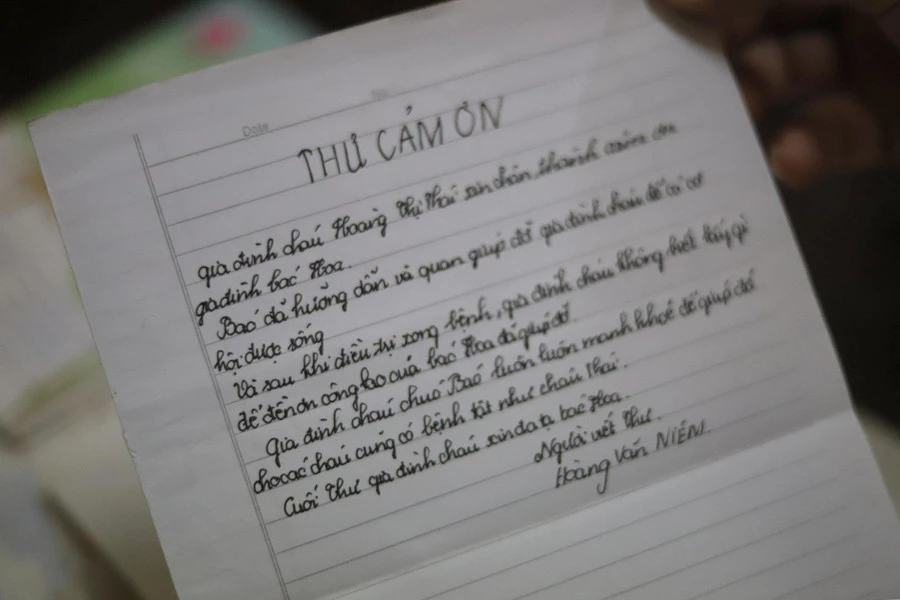 Date
No.
THƯ CẢM ƠN
gia đình cháu Hoàng Thị Thái xin chân thành cảm ơn
gia đình bác Hoa.
Bác đã hướng dẫn và quan giúp đỡ gia đình cháu để có cơ
hội được sống
Và sau khi điều trị xong bệnh, gia đình cháu không biết lấy gì
để đền ơn công lao của bác Hoa đã giúp đỡ.
Gia đình cháu chúc Bác luôn luôn mạnh khoẻ để giúp đỡ
cho các cháu cũng có bệnh tật như cháu Thái.
Cuối thư gia đình cháu xin đa tạ bác Hoa.
Người viết thư.
Hoàng Văn NIÊN.